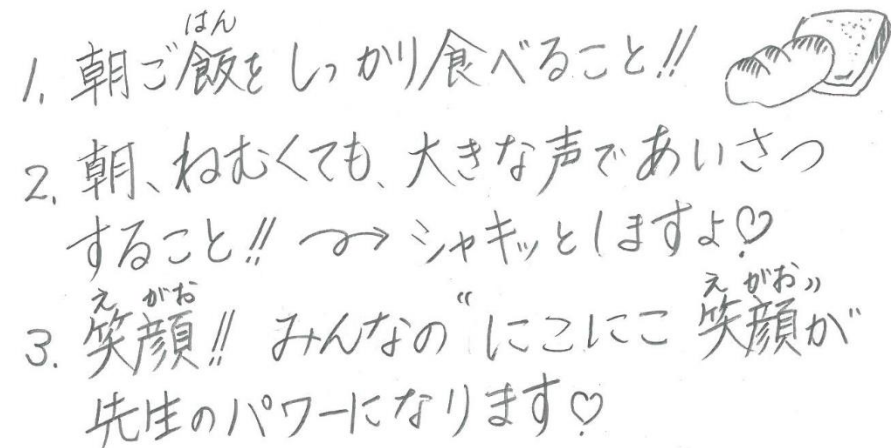 1. 朝ご飯をしっかり食べること!!
はん
2. 朝、ねむくても、大きな声であいさつ
すること!! シャキッとしますよ♡
えがお えがお
3. 笑顔!! みんなの“にこにこ笑顔”が
先生のパワーになります♡